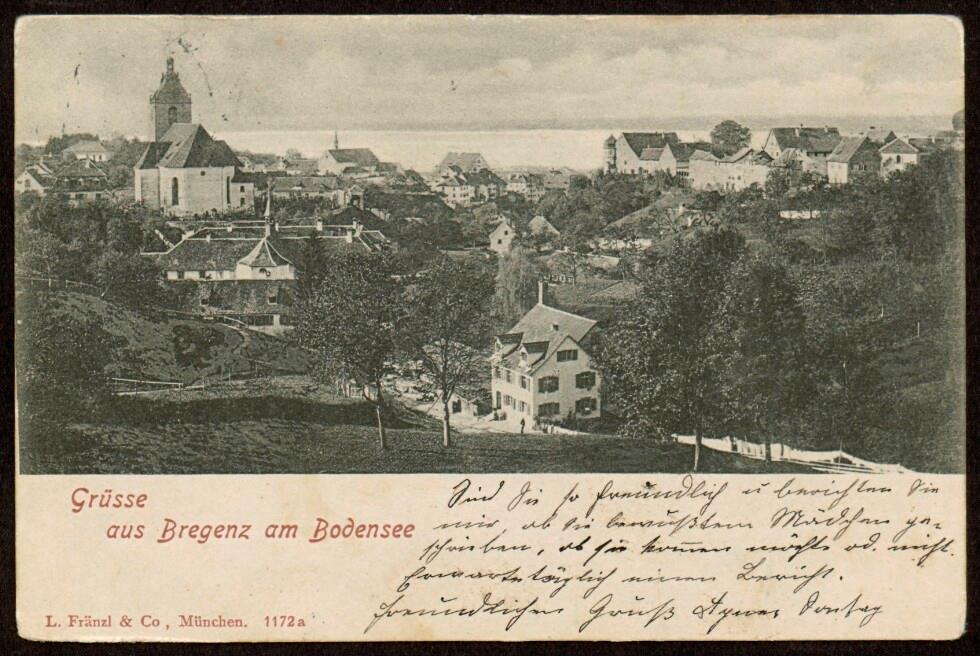 Grüsse
aus Bregenz am Bodensee
L. Fränzl & Co, München. 1172a
Sind Sie so freundlich u berichten Sie
mir, ob Sie bewußtem Mädchen ge-
schrieben, ob sie kommen möchte od. nicht.
Erwarte täglich einen Bericht.
Freundlichen Gruß Agnes